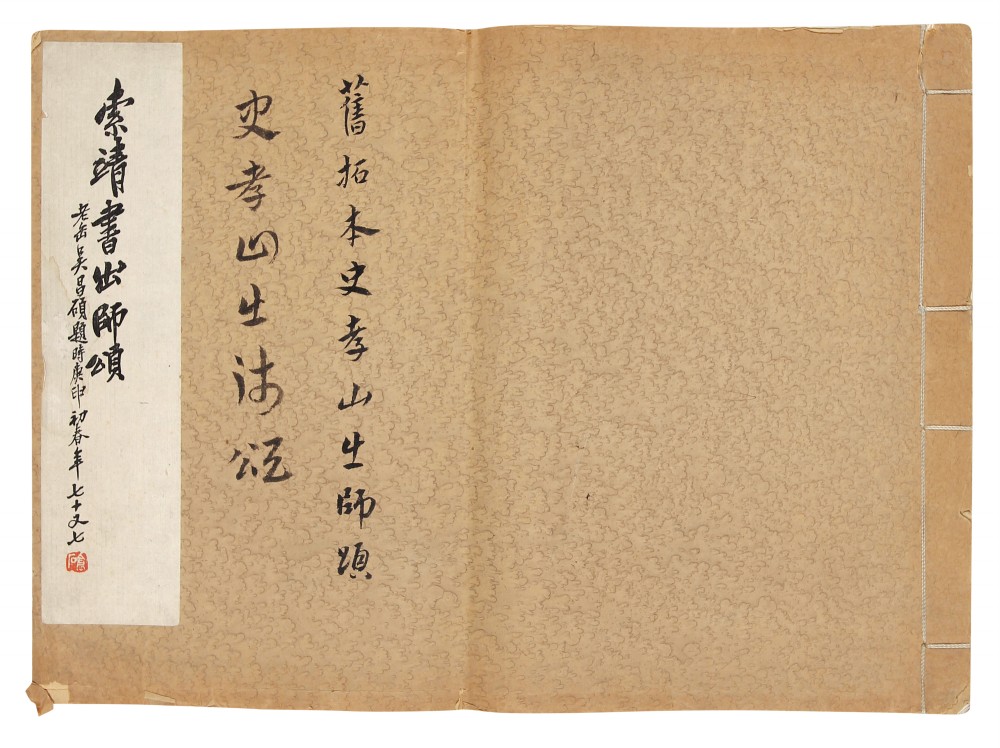 舊拓本史孝山出師頌
史孝山出師頌
索靖書出師頌
老缶吳昌碩題時庚申初春年七十又七